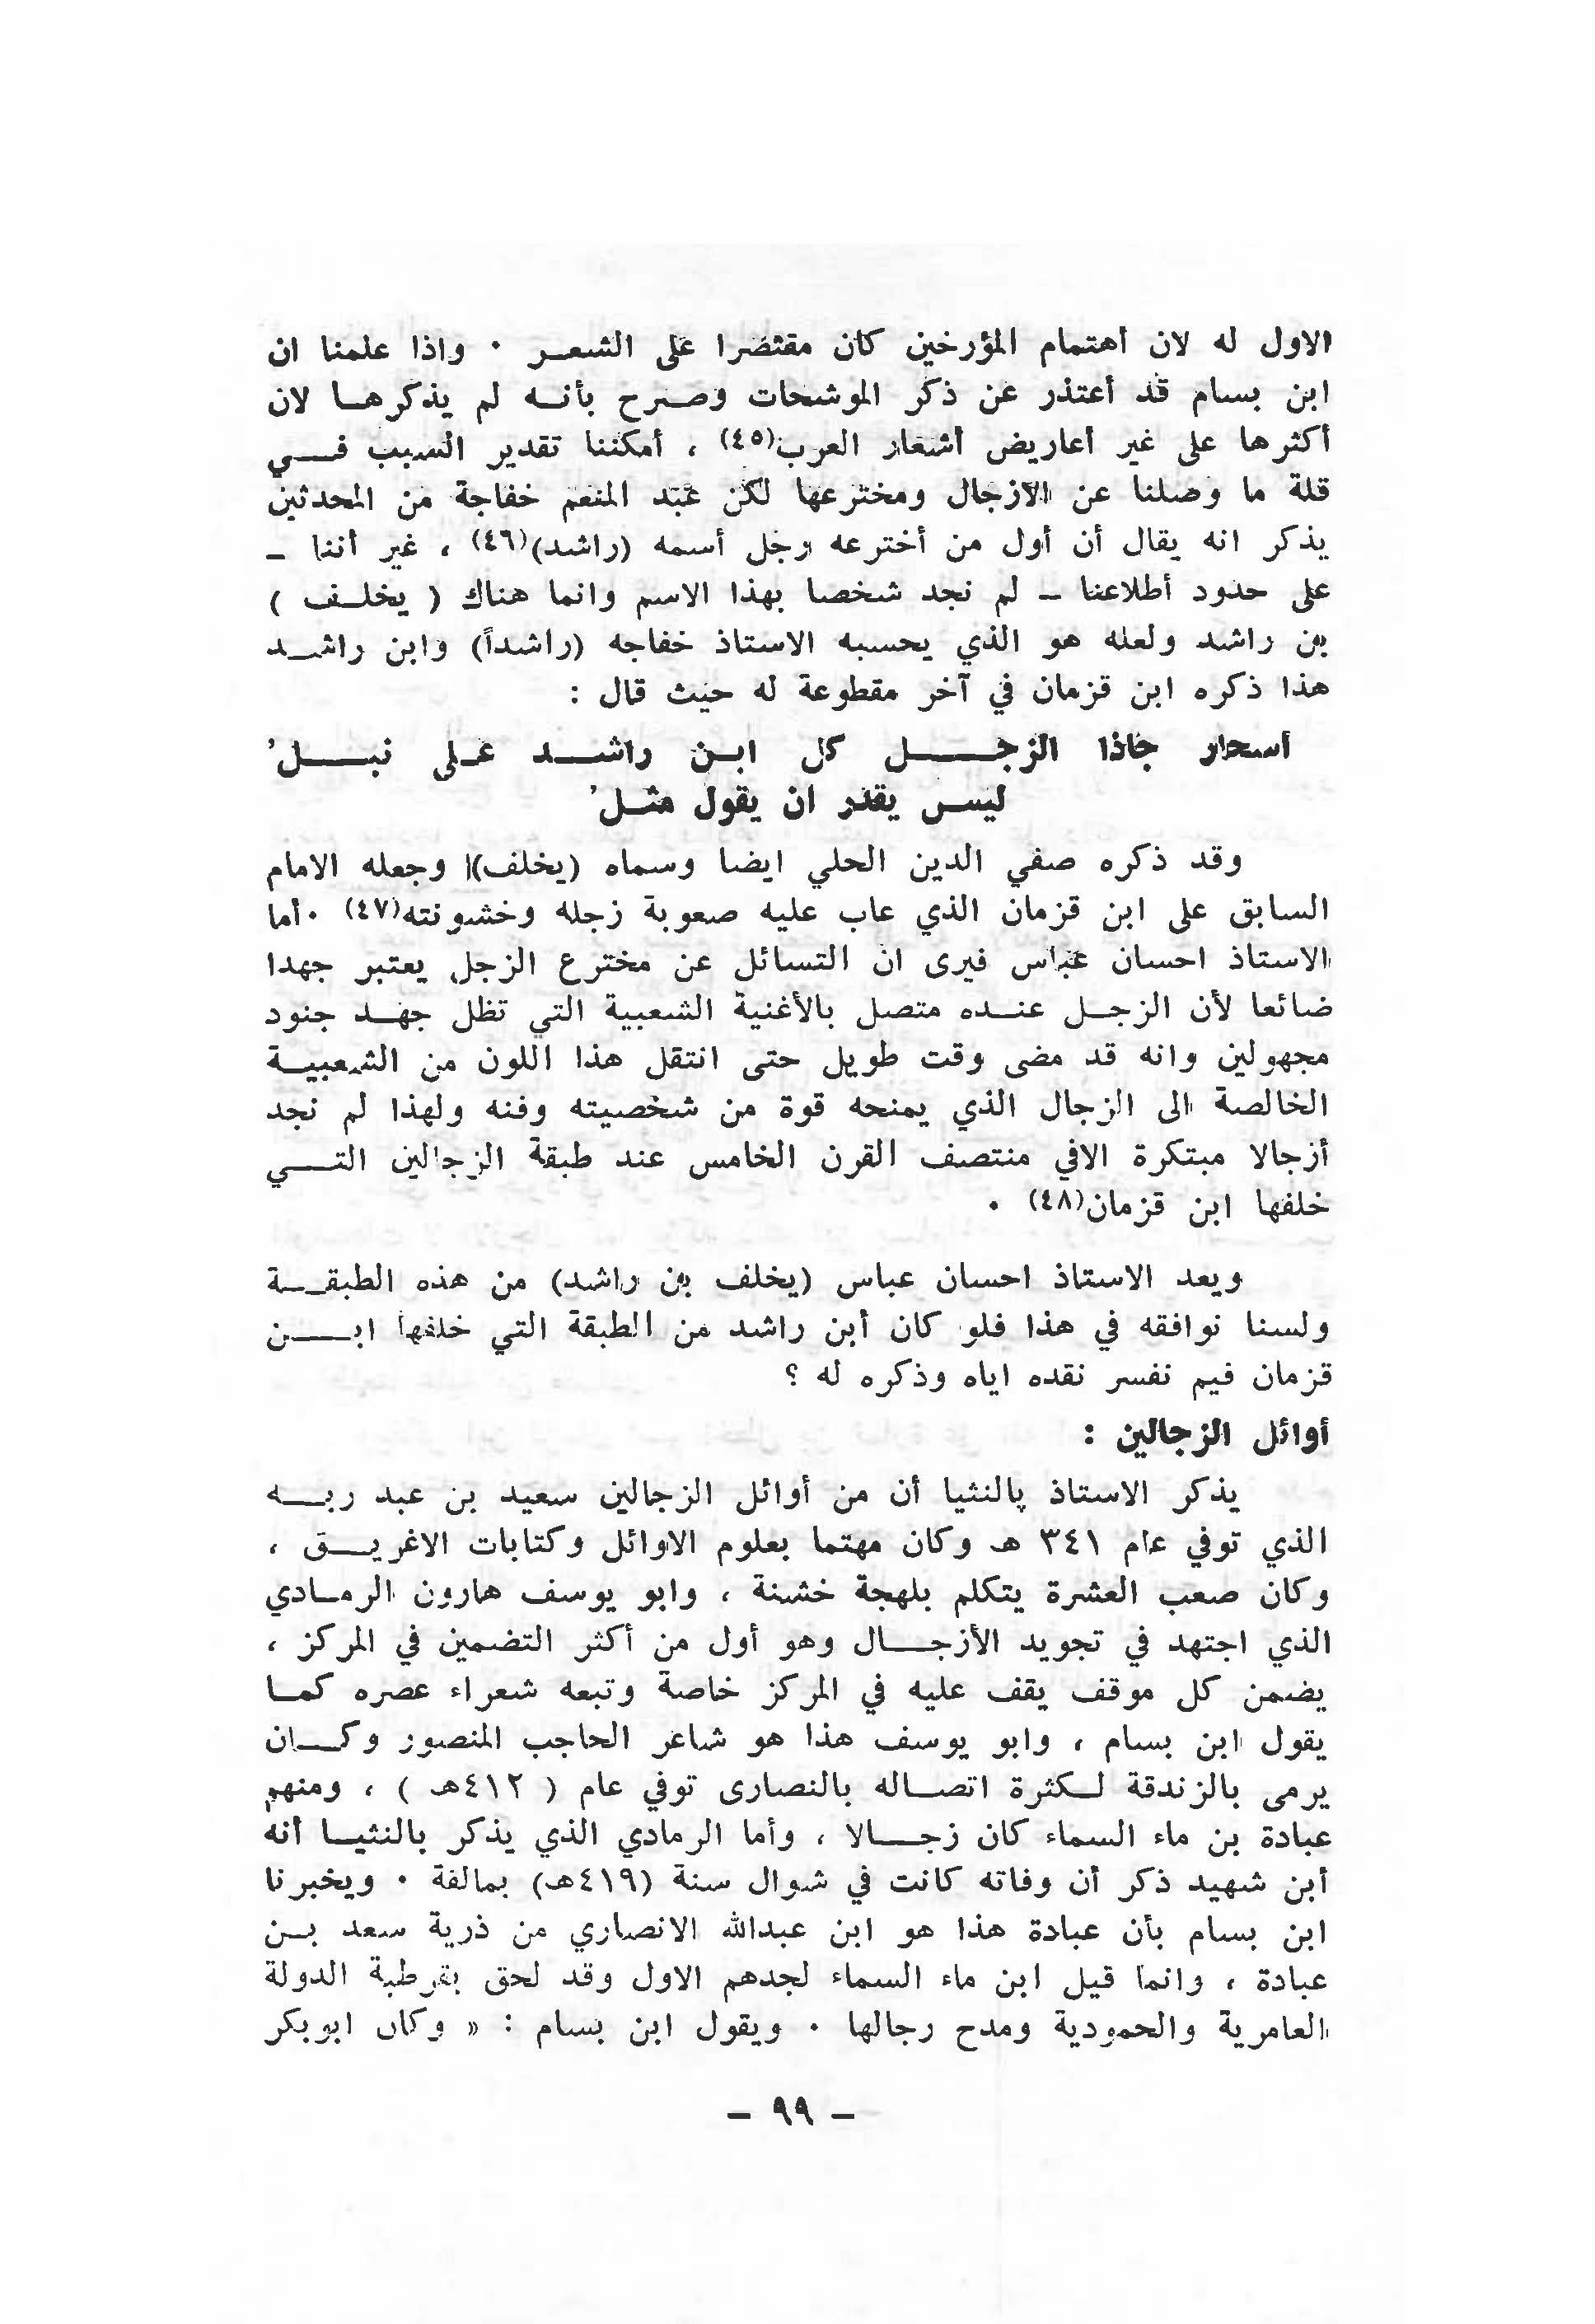 الاول له لان أهتمام المؤرخين كان مقتصرا على الشعر ٠ واذا علمنا ان
ابن بسام قد أعتذر عن ذكر الموشحات وصرح بأنه لم يذكرها لان
أكثرها على غير أعاريض أشعار العرب(٤٥) ، أمكننا تقدير السبب في
قلة ما وصلنا عن الازجال ومخترعها لكن عبد المنعم خفاجة من المحدثين
يذكر انه يقال أن أول من أخترعه رجل أسمه (راشد)(٤٦) ، غير أننا –
على حدود أطلاعنا – لم نجد شخصا بهذا الاسم وانما هناك ( يخلف )
بن راشد ولعله هو الذي يحسبه الاستاذ خفاجه (راشداً) وابن راشد
هذا ذكره ابن قزمان في آخر مقطوعة له حيث قال :
أسحار جاذا الزجل كل ابن راشد على نبل’
ليس يقدر ان يقول مثل’
وقد ذكره صفي الدين الحلي ايضا وسماه (يخلف) وجعله الامام
السابق على ابن قزمان الذي عاب عليه صعوبة زجله وخشونته(٤٧) ٠أما
الاستاذ احسان عباس فيرى ان التسائل عن مخترع الزجل يعتبر جهدا
ضائعا لأن الزجل عنده متصل بالأغنية الشعبية التي تظل جهد جنود
مجهولين وانه قد مضى وقت طويل حتى انتقل هذا اللون من الشعبية
الخالصة الى الزجال الذي يمنحه قوة من شخصيته وفنه ولهذا لم نجد
أزجالا مبتكرة الافي منتصف القرن الخامس عند طبقة الزجالين التي
خلفها ابن قزمان(٤٨) ٠
ويعد الاستاذ احسان عباس (يخلف بن راشد) من هذه الطبقة
ولسنا نوافقه في هذا فلو كان أبن راشد من الطبقة التي خلفها ابن
قزمان فيم نفسر نقده اياه وذكره له ؟
أوائل الزجالين :
يذكر الاستاذ پالنثيا أن من أوائل الزجالين سعيد بن عبد ربه
الذي توفي عام ٣٤١ هـ وكان مهتما بعلوم الاوائل وكتابات الاغريق ،
وكان صعب العشرة يتكلم بلهجة خشنة ، وابو يوسف هارون الرمادي
الذي اجتهد في تجويد الأزجال وهو أول من أكثر التضمين في المركز ،
يضمن كل موقف يقف عليه في المركز خاصة وتبعه شعراء عصره كما
يقول ابن بسام ، وابو يوسف هذا هو شاعر الحاجب المنصور وكان
يرمى بالزندقة لكثرة اتصاله بالنصارى توفي عام ( ٤١٢هـ ) ، ومنهم
عبادة بن ماء السماء كان زجالا ، وأما الرمادي الذي يذكر بالنثيا أنه
أبن شهيد ذكر أن وفاته كانت في شوال سنة (٤١٩هـ) بمالقة ٠ ويخبرنا
ابن بسام بأن عبادة هذا هو ابن عبدالله الانصاري من ذرية سعد بن
عبادة ، وانما قيل ابن ماء السماء لجدهم الاول وقد لحق بقرطبة الدولة
العامرية والحمودية ومدح رجالها ٠ ويقول ابن بسام : « وكان ابوبكر
– ٩٩ –